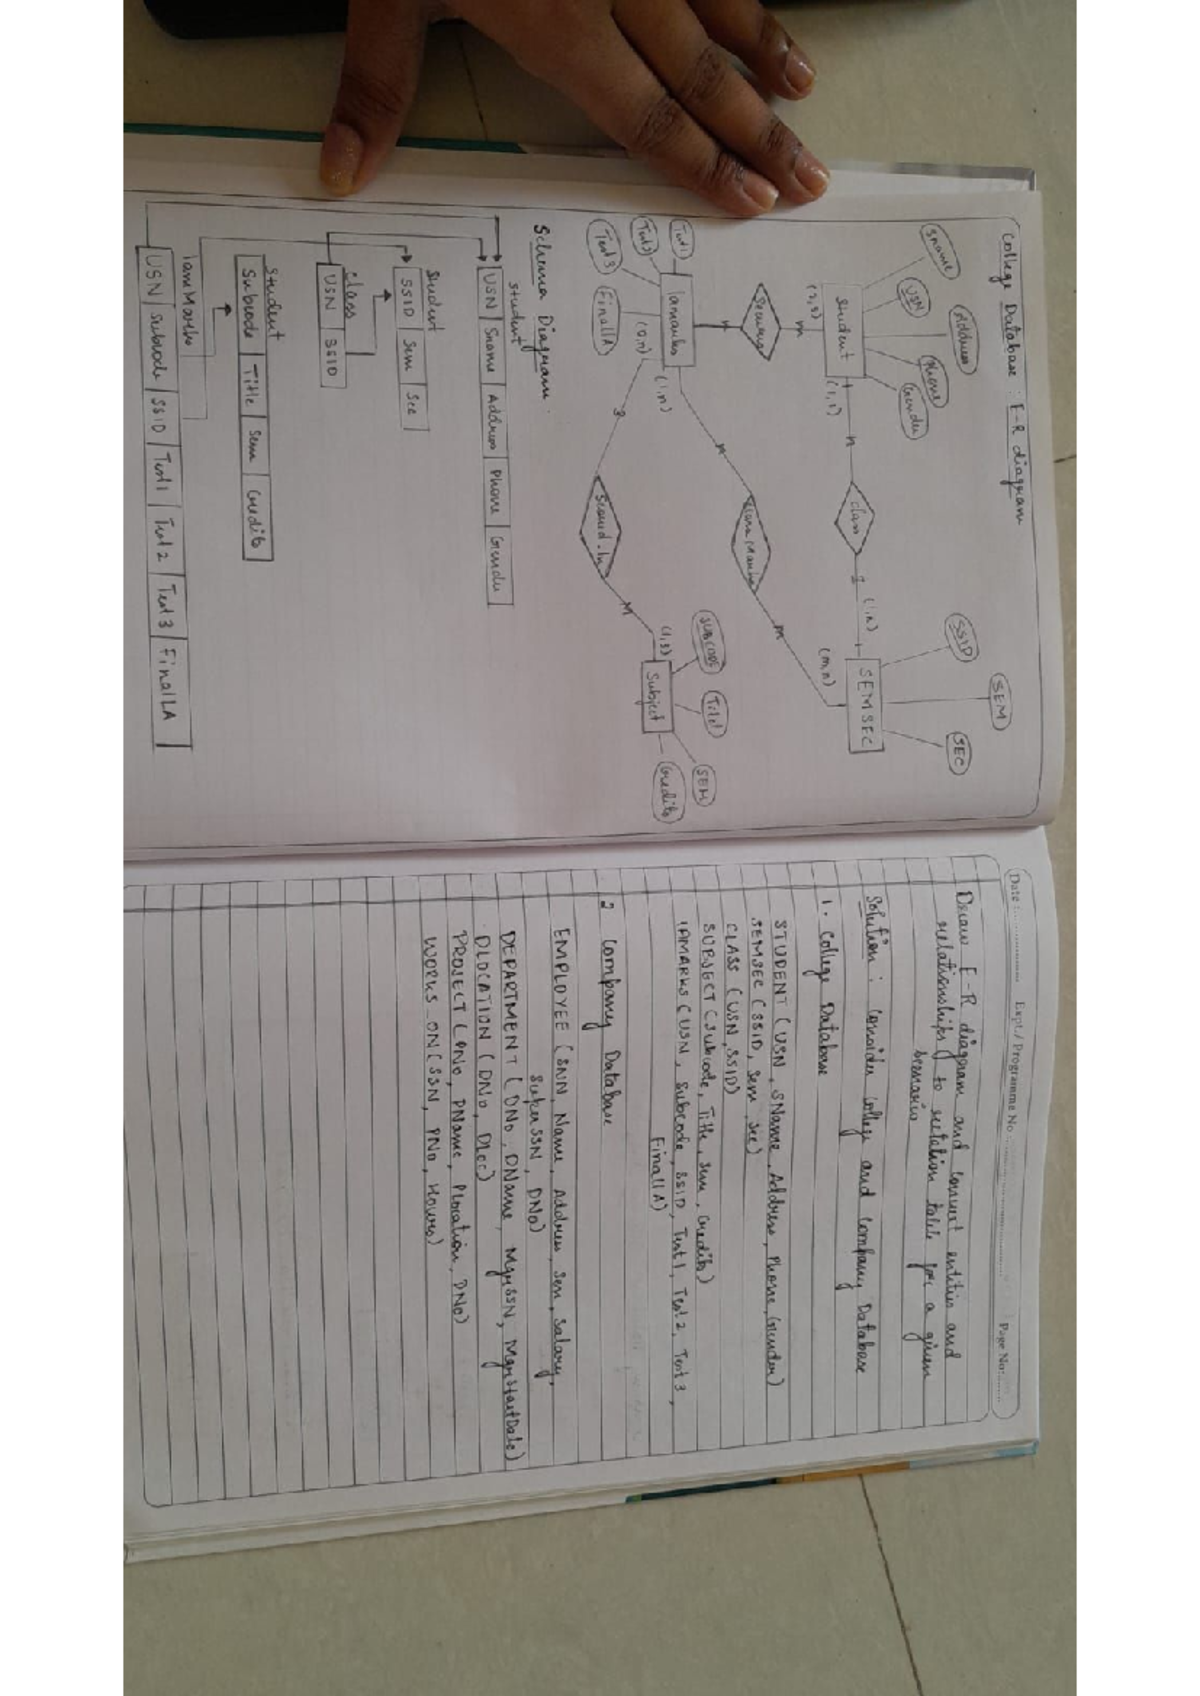 College Database : E-R diagram
Sname
USN
Address
Phone
Gender
SSID
SEM
SEC
Student
n
class
(1,n)
SEMSEC
(1,1)
m
(m,n)
Secures
m
m
Iamarks
(0,n)
(1,n)
m
Test1
Test2
Test3
FinalIA
M
(1,1)
Subject
SUBCODE
Title
SEM
Credits
Schema Diagram.
Student
USN Sname Address Phone Gender
Student
SSID Sem Sec
Class
USN SSID
Student
Subcode Title Sem Credits
Iam Marks
USN Subcode SSID Test1 Test2 Test3 FinalIA
Date : Expt./ Programme No. Page No:
Draw E-R diagram and convert entities and
relationships to relation table for a given
Scenario
Solution : Consider college and company Database
1. College Database
STUDENT (USN, SName, Address, Phone, Gender)
SEMSEC (SSID, Sem, Sec)
CLASS (USN, SSID)
SUBJECT (Subcode, Title, Sem, Credits)
IAMARKS (USN, Subcode, SSID, Test1, Test2, Test3,
FinalIA)
2 Company Database
EMPLOYEE (SNN, Name, Address, Sex, Salary,
SuperSSN, DNo)
DEPARTMENT (DNo, DName, MgrSSN, MgrStartDate)
DLOCATION (DNo, DLoc)
PROJECT (PNo, PName, Plocation, DNo)
WORKS_ON (SSN, PNo, Hours)